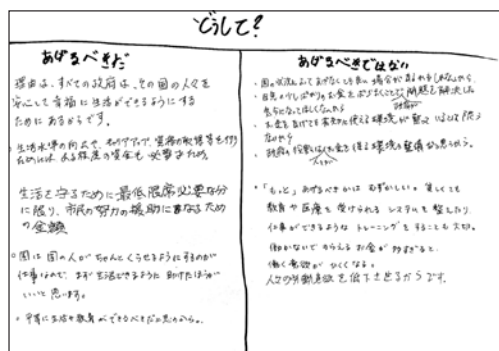 どうして？
あげるべきだ
理由は、すべての政府は、その国の人々を
安心して幸福に生活ができるようにする
ためにあるからです。
・生活水準の向上や、キャリアアップ、資格の取得等を行う
ためには、ある程度の資金も必要なため
生活を守るために最低限度必要な分
に限り、市民の努力の援助になるため
の金額
○国は国の人がちゃんとくらせるようにするのが
仕事なので、まず生活できるように助けたほうが
いいと思います。
・平等に生活や教育ができるべきだと思うから。
あげるべきではない
・国の状況によってあげなくても良い場合があるかもしれないから
・目先の少しばかりのお金を
問題を解決した
気になってほしくないから
政府が
・お金をあげても有効に使える環境が整っているとは限ら
ないから
・政府の役割は お金を得る環境の整備だと思うから。
・「もっと」あげるべきかはむずかしい。貧しくても
教育や医療を受けられるシステムを整えたり、
仕事ができるようなトレーニングをすることも大切。
働かないでもらえるお金が多すぎると
働く意欲がなくなる。
人々の労働意欲を低下させるからです。